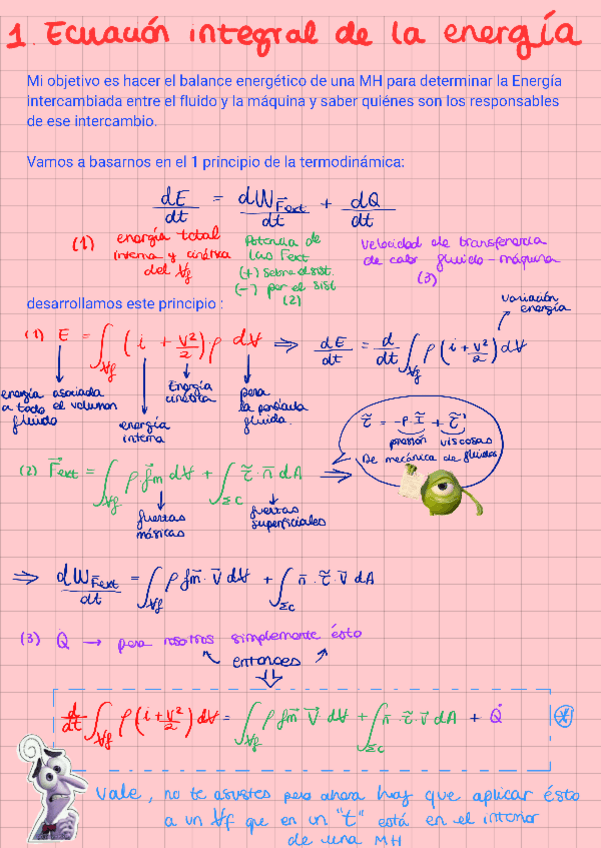 1. Ecuación integral de la energía
Mi objetivo es hacer el balance energético de una MH para determinar la Energía
intercambiada entre el fluido y la máquina y saber quiénes son los responsables
de ese intercambio.
Vamos a basarnos en el 1 principio de la termodinámica:
dE/dt = dW_Fext/dt + dQ/dt
(1) energía total interna y cinética del V̶f
Potencia de las Fext (+) sobre el sist. (-) por el sist (2)
velocidad de transferencia de calor fluido-máquina (3)
desarrollamos este principio :
variación energía
(1) E = ∫_V̶f (i + v²/2) ρ dV̶ ⇒ dE/dt = d/dt ∫_V̶f ρ (i + v²/2) dV̶
energía asociada a todo el volumen fluido
energía interna
Energía cinética
para la partícula fluida.
τ̃ = -p·I̿ + τ̃'
presión viscosas
De mecánica de fluidos
(2) F⃗ext = ∫_V̶f ρ·f⃗m dV̶ + ∫_Σc τ̃·n̄ dA ⇒
fuerzas másicas
fuerzas superficiales
⇒ dW_Fext/dt = ∫_V̶f ρ f⃗m·v̄ dV̶ + ∫_Σc n̄·τ̃·v̄ dA
(3) Q̇ → para nosotros simplemente ésto
entonces
d/dt ∫_V̶f ρ (i + v²/2) dV̶ = ∫_V̶f ρ f⃗m v̄ dV̶ + ∫_Σc n̄·τ̃·v̄ dA + Q̇ (*)
Vale, no te asustes pero ahora hay que aplicar ésto
a un V̶f que en un "t" está en el interior
de una MH